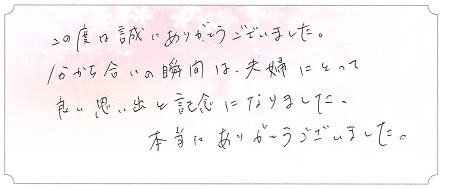 この度は誠にありがとうございました。
分かち合いの瞬間は、夫婦にとって
良い思い出と記念になりました。
本当にありがとうございました。